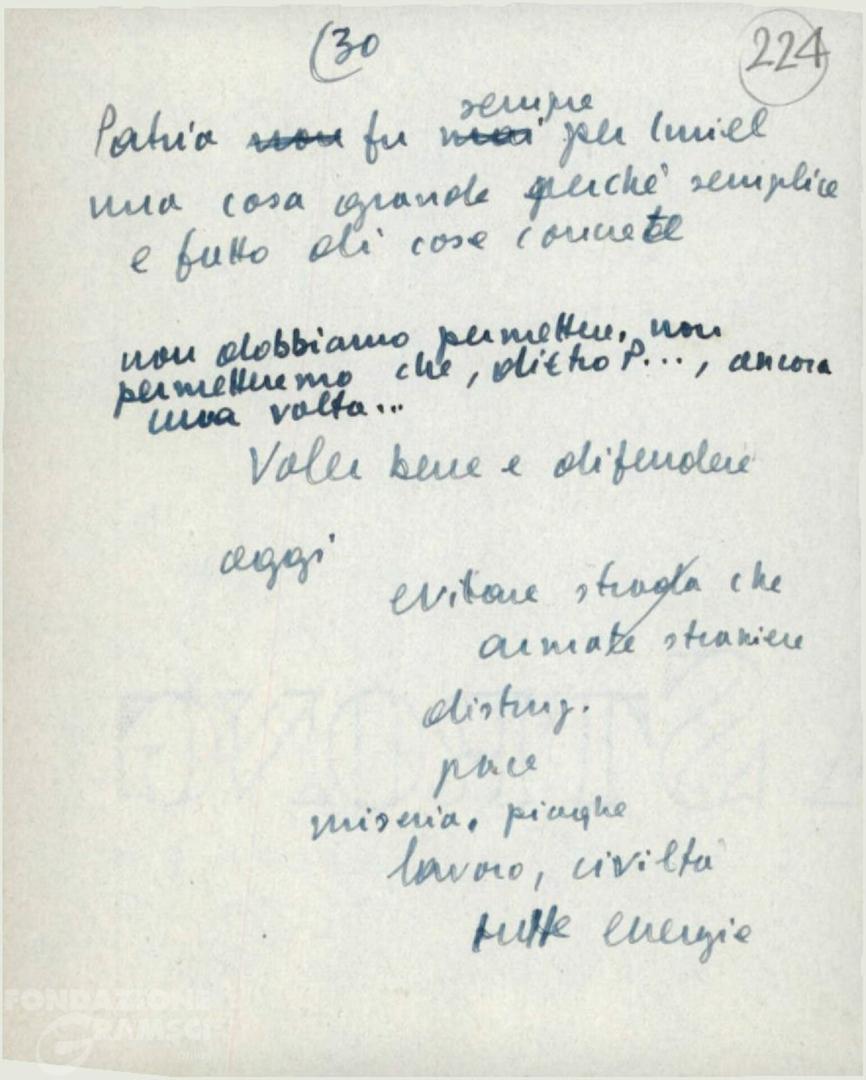 (30
224
sempre
Patria non fu mai per Curiel
una cosa grande perché semplice
e fatto di cose concrete
non dobbiamo permettere, non
permetteremo che, dietro P..., ancora
una volta...
Voler bene e difendere
oggi
evitare strada che
armate straniere
distrug.
pace
miseria, piaghe
lavoro, civiltà
tutte energie
FONDAZIONE
GRAMSCI